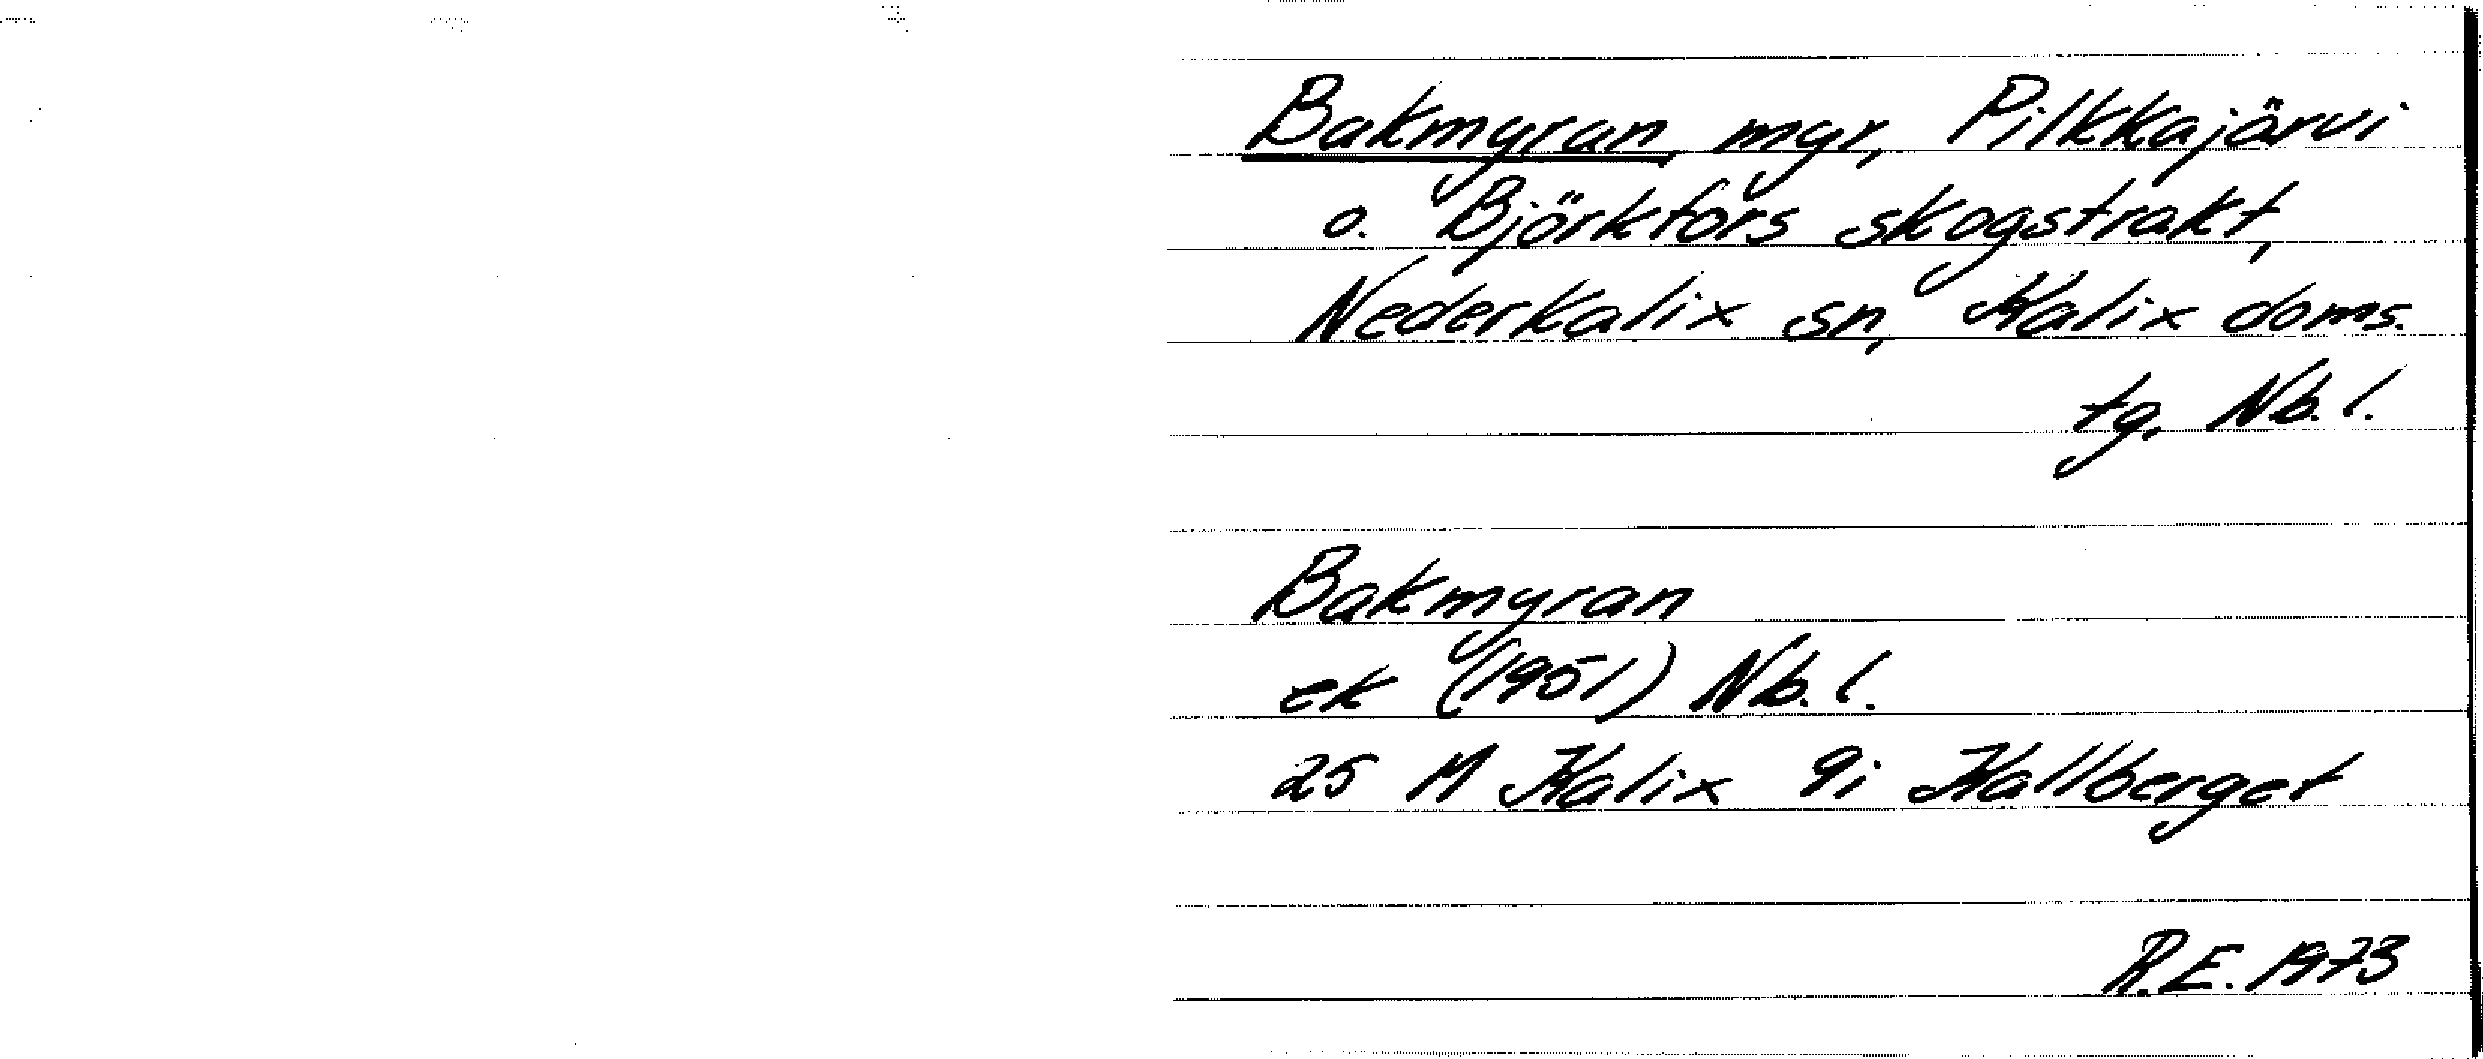 Bakmyran, myr, Pilkkajärvi
o. Björkfors skogstrakt,
Nederkalix sn, Kalix doms.
tg, Nb.l.
Bakmyran
ek (1951) Nb.l.
25 M Kalix 9i Kallberget
R.E. 1973